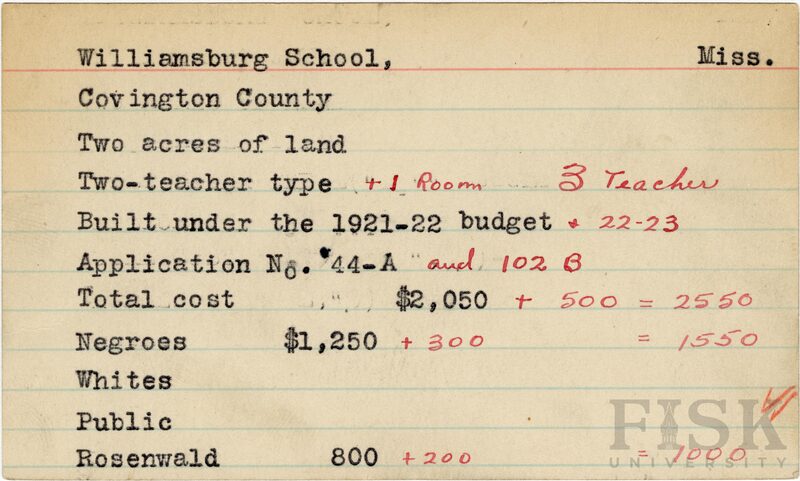 Williamsburg School, Miss.
Covington County
Two acres of land
Two-teacher type + 1 Room 3 Teacher
Built under the 1921-22 budget + 22-23
Application No. 44-A and 102 B
Total cost $2,050 + 500 = 2550
Negroes $1,250 + 300 = 1550
Whites
Public
Rosenwald 800 + 200 = 1000
FISK
UNIVERSITY